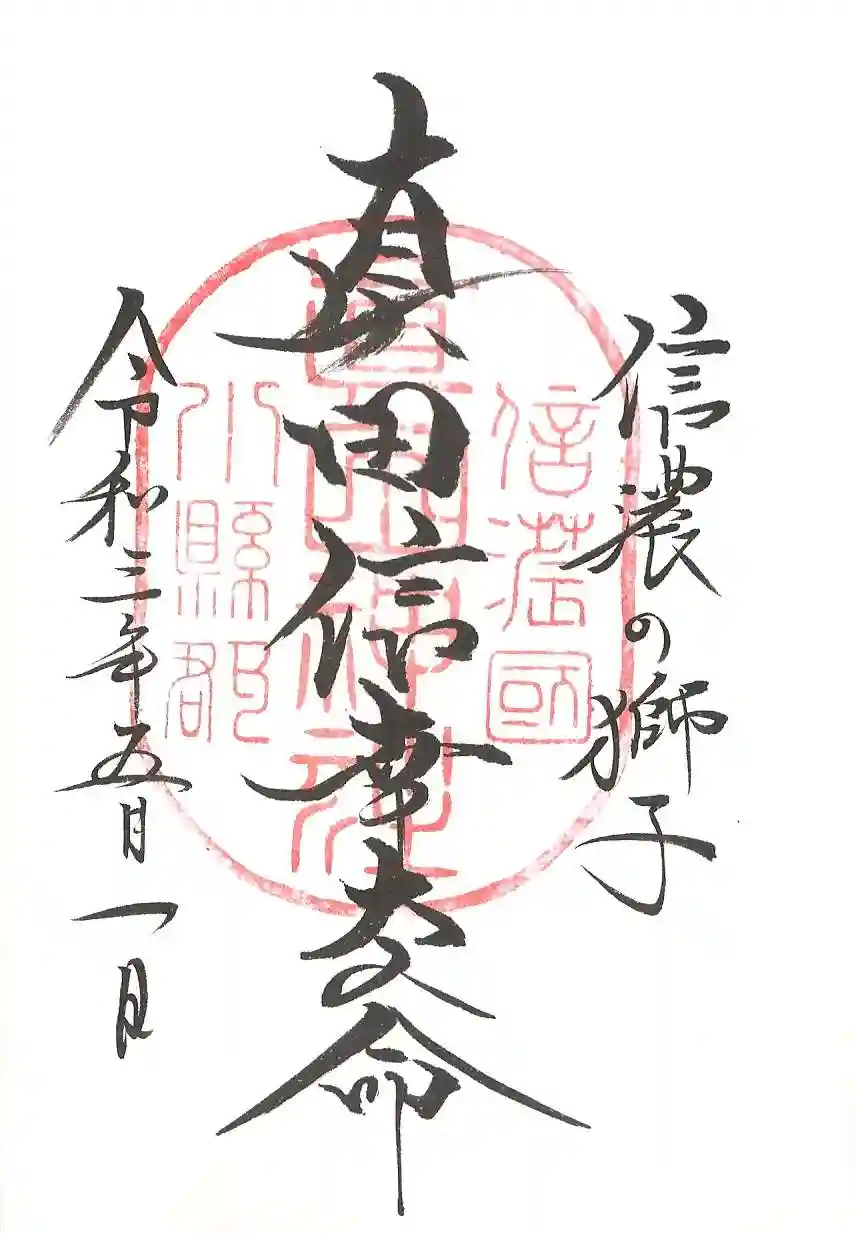 信濃の獅子
真田信幸大命
令和三年五月一日
信濃國
眞田神社
小縣郡